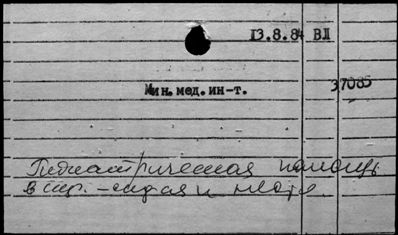 13.8.84 ВЛ
Мин. мед. ин-т.
37085
Педиатрическая помощь
в